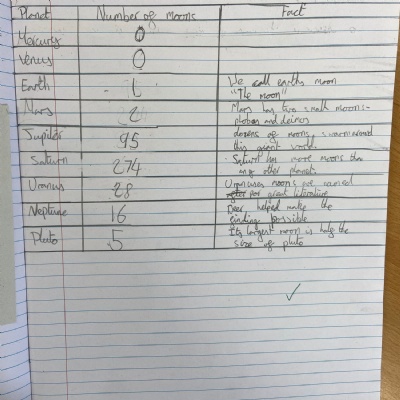 Planet Number of Moons Fact
Mercury 0
Venus 0
Earth - 1 We call earths moon
"The moon"
Mars 2 Mars has two small moons-
phobos and deimos
Jupiter 95 dozens of moons swarm around
this giant world.
Saturn 274 Saturn has more moons than
any other planet.
Uranus 28 Uranuses moons are named
after great literature
Neptune 16 helped make the
finding possible
Pluto 5 Its largest moon is half the
size of pluto